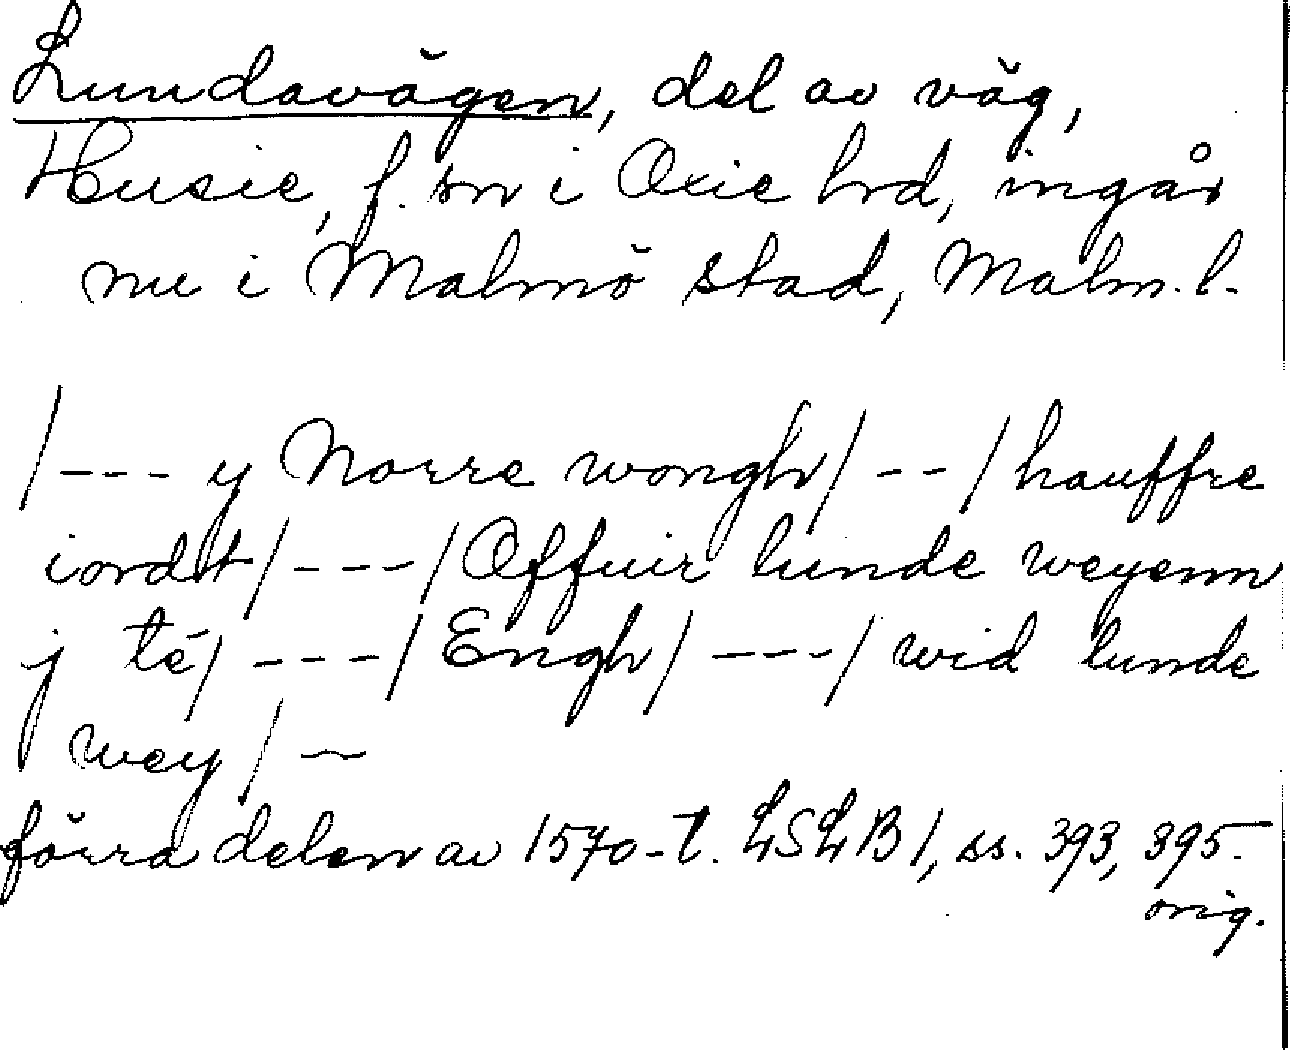 Lundavägen, del av väg,
Husie, f. sn i Oxie hrd, ingår
nu i Malmö stad, Malm. l.
/--- y Norre wongh/--/hauffre
iordt/---/Offuir lunde weyenn
j té/---/Engh/---/wid lunde
wey/~
förra delen av 1570-t. LSLB 1, ss. 393, 395.
orig.